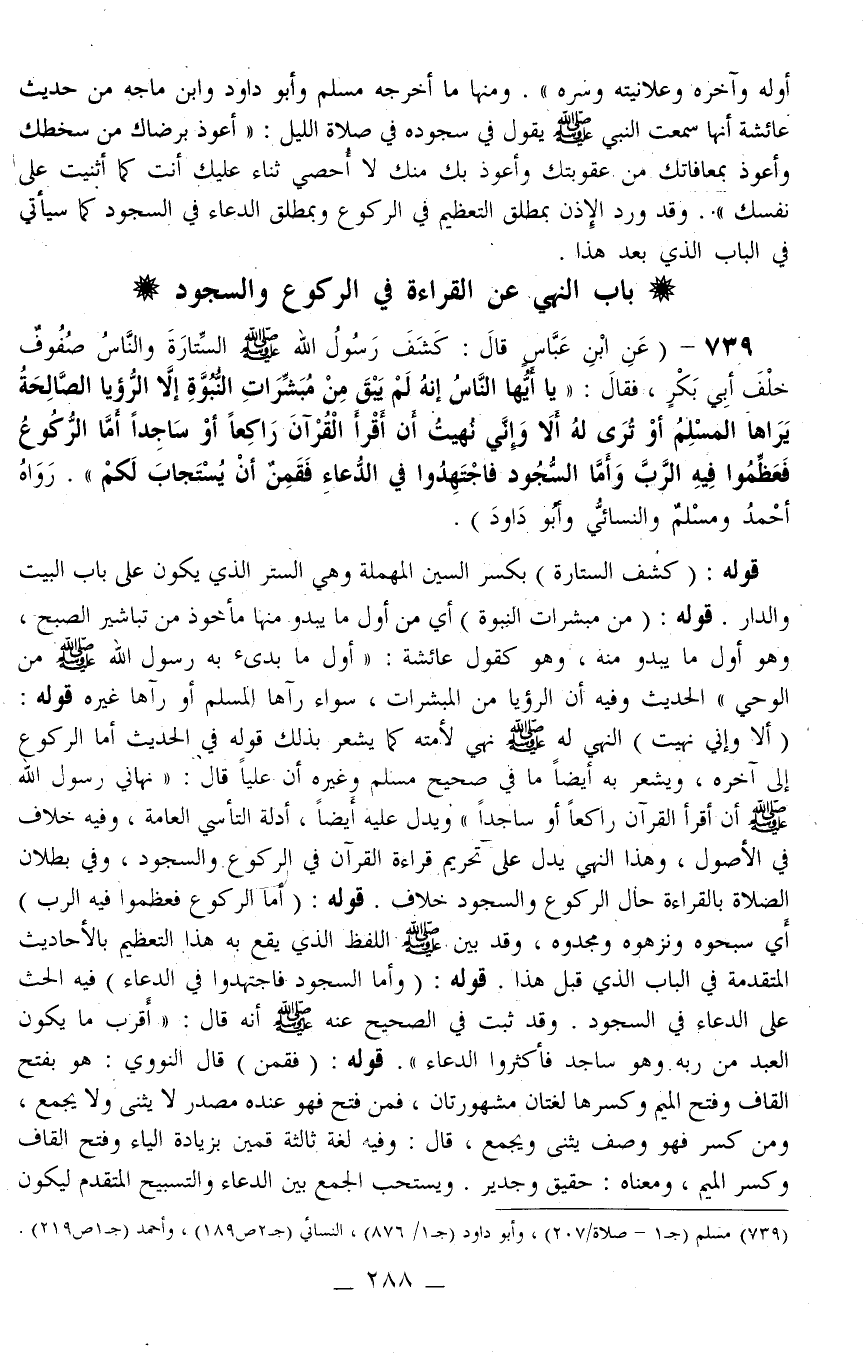 أوله وآخره وعلانيته وسره » . ومنها ما أخرجه مسلم وأبو داود وابن ماجه من حديث
عائشة أنها سمعت النبي ﷺ يقول في سجوده في صلاة الليل : « أعوذ برضاك من سخطك
وأعوذ بمعافاتك من عقوبتك وأعوذ بك منك لا أُحصي ثناء عليك أنت كما أثنيت على
نفسك » . وقد ورد الإِذن بمطلق التعظيم في الركوع وبمطلق الدعاء في السجود كما سيأتي
في الباب الذي بعد هذا .
✵ باب النهي عن القراءة في الركوع والسجود ✵
٧٣٩ – ( عَنِ ابْنِ عَبَّاسٍ قالَ : كَشَفَ رَسُولُ الله ﷺ السِّتارَةَ والنَّاسُ صُفُوفٌ
خلْفَ أبي بَكْرٍ ، فقالَ : « يا أَيُّها النَّاسُ إنهُ لَمْ يَبْقَ مِنْ مُبَشِّرَاتِ النُّبُوَّةِ إلَّا الرُّؤيا الصَّالِحَةُ
يَرَاها المسْلِمُ أوْ تُرَى لهُ أَلَا وَإنَّي نُهيتُ أَن أقْرأَ الْقُرْآنَ رَاكِعاً أوْ سَاجِداً أمَّا الرُّكُوعُ
فَعَظِّمُوا فِيهِ الرَّبَّ وَأَمَّا السُّجُود فاجْتَهِدُوا في الدُّعاءِ فَقَمِنٌ أنْ يُسْتَجابَ لَكمْ » . رَوَاهُ
أحْمدُ ومسْلمٌ والنسائيُّ وأبُو دَاودَ ) .
قوله : ( كشف الستارة ) بكسر السين المهملة وهي الستر الذي يكون على باب البيت
والدار . قوله : ( من مبشرات النبوة ) أي من أول ما يبدو منها مأخوذ من تباشير الصبح ،
وهو أول ما يبدو منه ، وهو كقول عائشة : « أول ما بدىء به رسول الله ﷺ من
الوحي » الحديث وفيه أن الرؤيا من المبشرات ، سواء رآها المسلم أو رآها غيره قوله :
( ألا وإني نهيت ) النهي له ﷺ نهي لأمته كما يشعر بذلك قوله في الحديث أما الركوع
إلى آخره ، ويشعر به أيضاً ما في صحيح مسلم وغيره أن علياً قال : « نهاني رسول الله
ﷺ أن أقرأ القرآن راكعاً أو ساجداً » ويدل عليه أيضاً ، أدلة التأسي العامة ، وفيه خلاف
في الأصول ، وهذا النهي يدل على تحريم قراءة القرآن في الركوع والسجود ، وفي بطلان
الصلاة بالقراءة حال الركوع والسجود خلاف . قوله : ( أما الركوع فعظموا فيه الرب )
أي سبحوه ونزهوه ومجدوه ، وقد بين ﷺ اللفظ الذي يقع به هذا التعظيم بالأحاديث
المتقدمة في الباب الذي قبل هذا . قوله : ( وأما السجود فاجتهدوا في الدعاء ) فيه الحث
على الدعاء في السجود . وقد ثبت في الصحيح عنه ﷺ أنه قال : « أقرب ما يكون
العبد من ربه وهو ساجد فأكثروا الدعاء » . قوله : ( فقمن ) قال النووي : هو بفتح
القاف وفتح الميم وكسرها لغتان مشهورتان ، فمن فتح فهو عنده مصدر لا يثنى ولا يجمع ،
ومن كسر فهو وصف يثنى ويجمع ، قال : وفيه لغة ثالثة قمين بزيادة الياء وفتح القاف
وكسر الميم ، ومعناه : حقيق وجدير . ويستحب الجمع بين الدعاء والتسبيح المتقدم ليكون
(٧٣٩) مسلم (جـ١ – صلاة/٢٠٧) ، وأبو داود (جـ١/ ٨٧٦) ، النسائي (جـ٢ص١٨٩) ، وأحمد (جـ١ص٢١٩) .
_ ٢٨٨ _